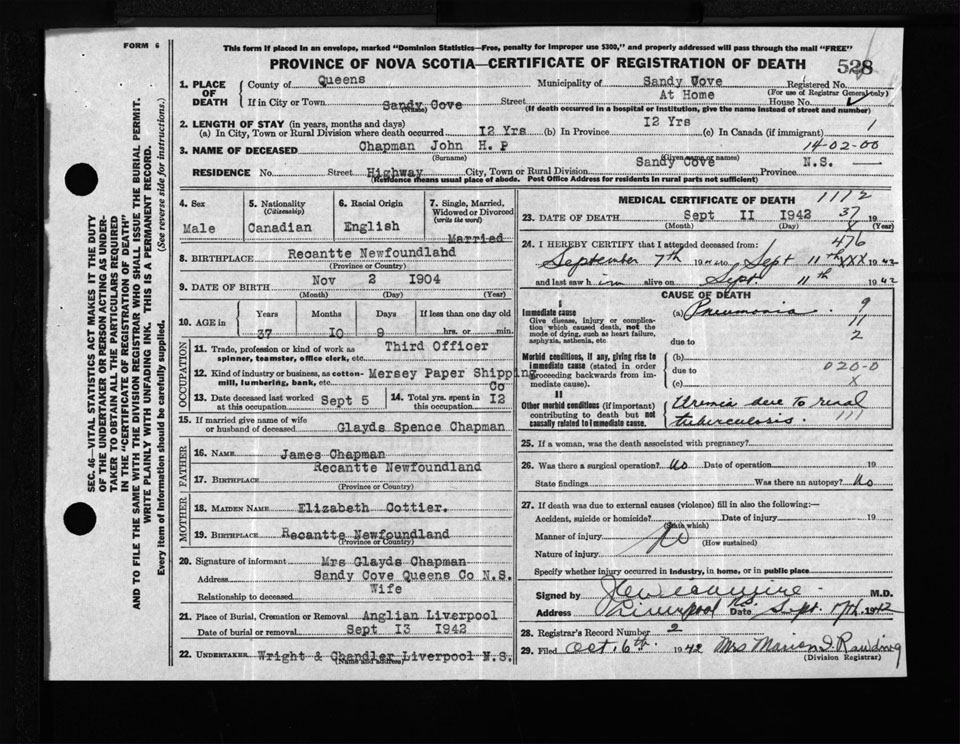 FORM 6
This form if placed in an envelope, marked "Dominion Statistics—Free, penalty for improper use $300," and properly addressed will pass through the mail "FREE"
PROVINCE OF NOVA SCOTIA—CERTIFICATE OF REGISTRATION OF DEATH 528
1. PLACE OF DEATH County of Queens Municipality of Sandy Cove Registered No.
(For use of Registrar General only)
If in City or Town Sandy Cove (Name) Street At Home House No.
(If death occurred in a hospital or institution, give the name instead of street and number)
2. LENGTH OF STAY (in years, months and days)
(a) In City, Town or Rural Division where death occurred 12 Yrs (b) In Province 12 Yrs (c) In Canada (if immigrant) 1
3. NAME OF DECEASED Chapman John H. P 14-02-00
(Surname) (Given name or names)
RESIDENCE No. Street Highway City, Town or Rural Division Sandy Cove Province N.S.
(Residence means usual place of abode. Post Office Address for residents in rural parts not sufficient)
4. Sex Male
5. Nationality (Citizenship) Canadian
6. Racial Origin English
7. Single, Married, Widowed or Divorced (write the word) Married
8. BIRTHPLACE Recantte Newfoundland
(Province or Country)
9. DATE OF BIRTH Nov 2 1904
(Month) (Day) (Year)
10. AGE in Years Months Days If less than one day old
37 10 9 hrs. or min.
OCCUPATION
11. Trade, profession or kind of work as spinner, teamster, office clerk, etc. Third Officer
12. Kind of industry or business, as cotton-mill, lumbering, bank, etc. Mersey Paper Shipping Co
13. Date deceased last worked at this occupation Sept 5
14. Total yrs. spent in this occupation 12
15. If married give name of wife or husband of deceased Glayds Spence Chapman
FATHER
16. NAME James Chapman
17. BIRTHPLACE Recantte Newfoundland
(Province or Country)
MOTHER
18. MAIDEN NAME Elizabeth Cottier.
19. BIRTHPLACE Recantte Newfoundland
(Province or Country)
20. Signature of informant Mrs Glayds Chapman
Address Sandy Cove Queens Co N.S.
Relationship to deceased Wife
21. Place of Burial, Cremation or Removal Anglian Liverpool
Date of burial or removal Sept 13 1942
22. UNDERTAKER Wright & Chandler Liverpool N.S.
(Name and address)
MEDICAL CERTIFICATE OF DEATH 1112
23. DATE OF DEATH Sept 11 1942 37 19
(Month) (Day) X
24. I HEREBY CERTIFY that I attended deceased from: 476
September 7th 19 to Sept 11th XXX 1942
and last saw him alive on Sept. 11th 1942
CAUSE OF DEATH
I
Immediate cause
Give disease, injury or complication which caused death, not the mode of dying, such as heart failure, asphyxia, asthenia, etc
(a) Pneumonia 9
11
due to 2
Morbid conditions, if any, giving rise to immediate cause (stated in order proceeding backwards from immediate cause).
(b)
due to 020-0
(c) X
II
Other morbid conditions (if important) contributing to death but not causally related to immediate cause.
Uremia due to renal tuberculosis. 111
25. If a woman, was the death associated with pregnancy?
26. Was there a surgical operation? No Date of operation 19
State findings Was there an autopsy? No
27. If death was due to external causes (violence) fill in also the following:—
Accident, suicide or homicide? Date of injury 19
(State which)
Manner of injury No
(How sustained)
Nature of injury
Specify whether injury occurred in industry, in home, or in public place
Signed by M.D.
Address Liverpool N.S. Date Sept. 1942
28. Registrar's Record Number 2
29. Filed Oct. 6th 1942 Mrs Marion I. Rawding
(Division Registrar)
SEC. 46—VITAL STATISTICS ACT MAKES IT THE DUTY
OF THE UNDERTAKER OR PERSON ACTING AS UNDER-
TAKER TO OBTAIN ALL THE PARTICULARS REQUIRED
IN THE "CERTIFICATE OF REGISTRATION OF DEATH"
AND TO FILE THE SAME WITH THE DIVISION REGISTRAR WHO SHALL ISSUE THE BURIAL PERMIT.
WRITE PLAINLY WITH UNFADING INK. THIS IS A PERMANENT RECORD.
Every item of information should be carefully supplied. (See reverse side for instructions.)